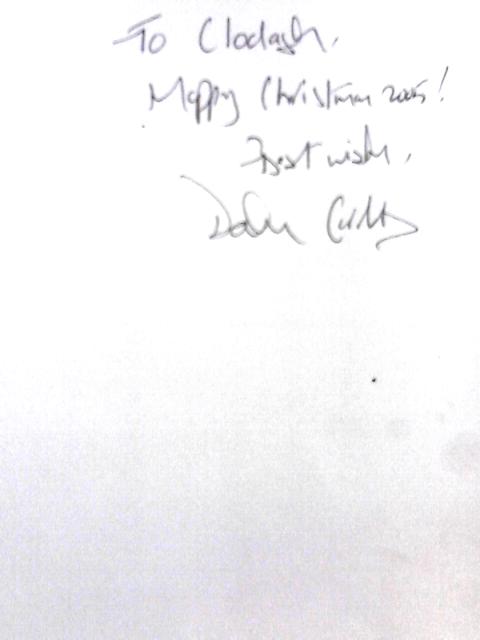 To Clodagh,
Happy Christmas 2005!
Best wishes,